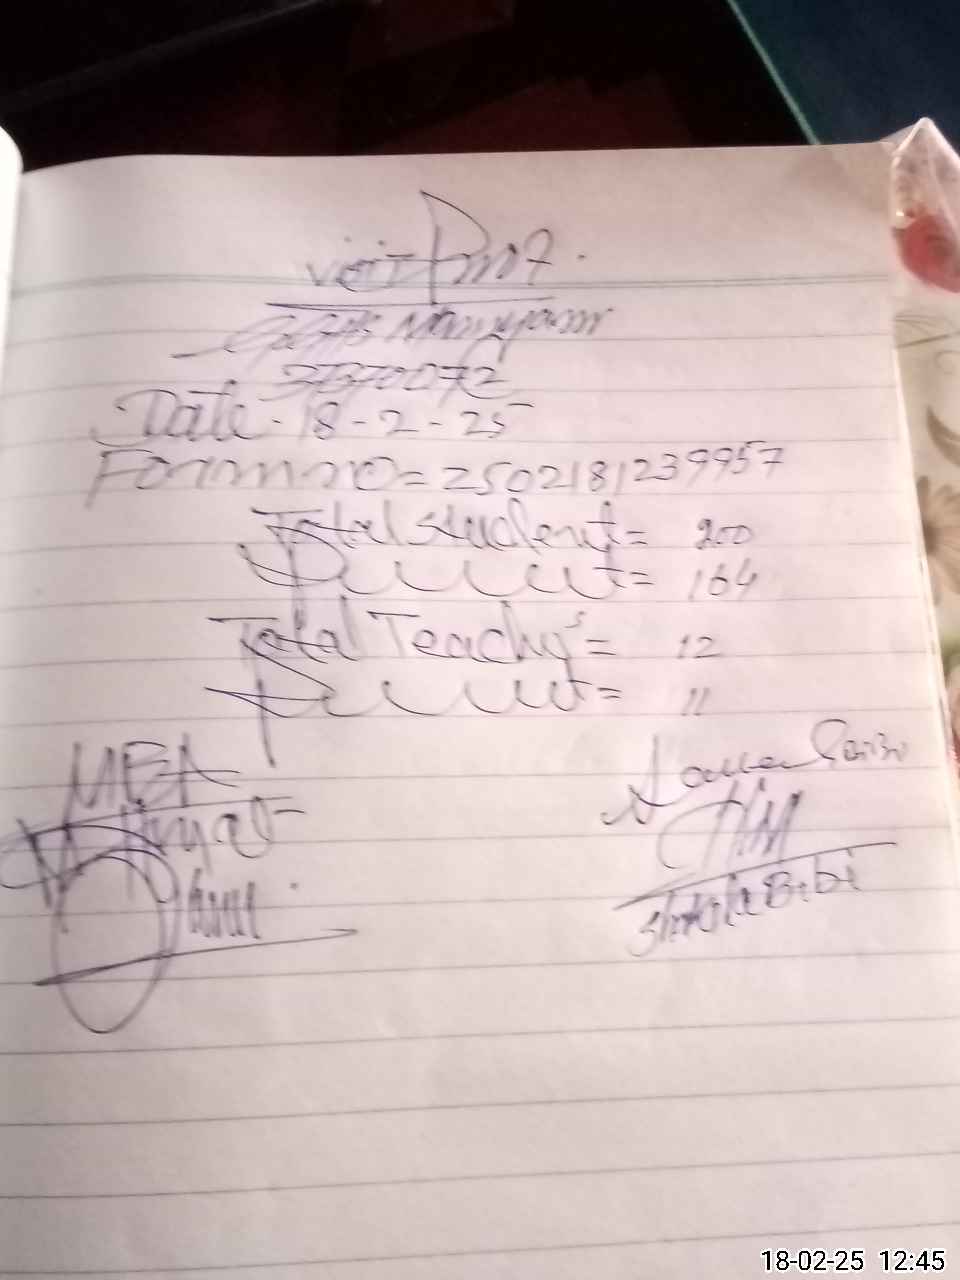 visit
37370072
Date - 18 - 2 - 25
Form no = 2502181239957
Total student = 200
Present = 164
Total Teachers = 12
Present = 11
MEA
HM
Shakila Bibi
18-02-25 12:45